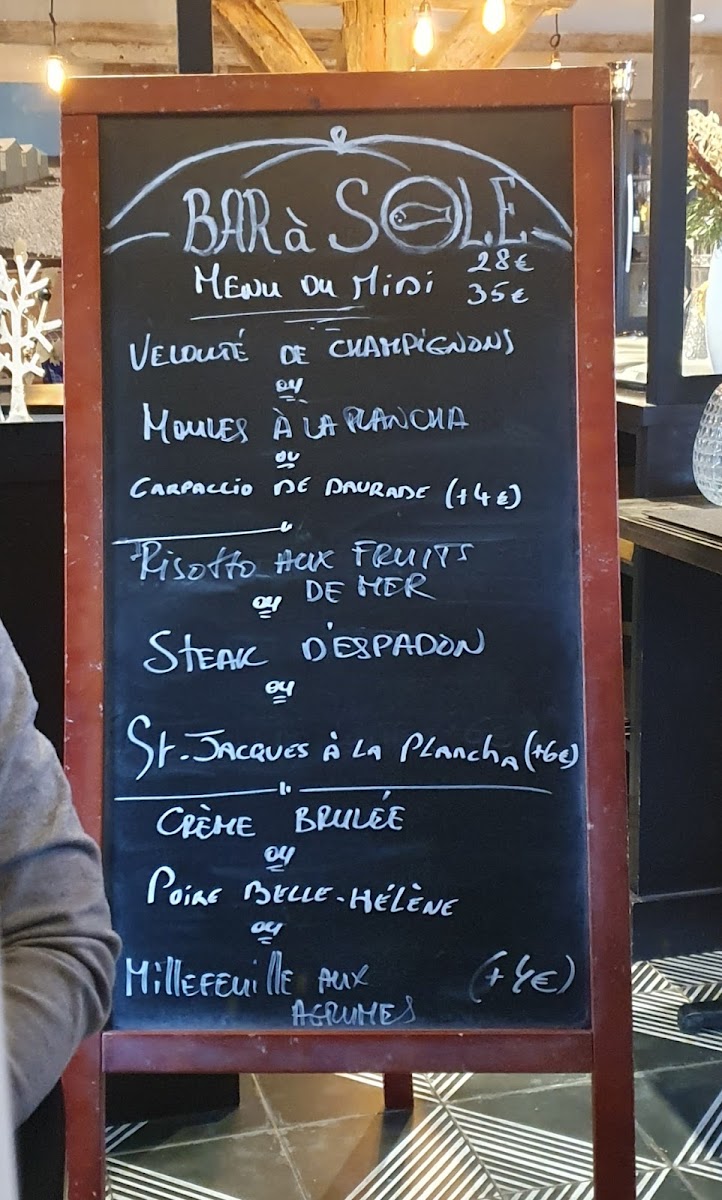 BAR à SOLE
28€
MENU DU MIDI
35€
VELOUTÉ DE CHAMPIGNONS
ou
MOULES À LA PLANCHA
ou
CARPACCIO DE DAURADE (+4€)
RISOTTO AUX FRUITS
DE MER
ou
STEAK D'ESPADON
ou
St-JACQUES À LA PLANCHA (+6€)
CRÈME BRULÉE
ou
POIRE BELLE-HÉLÈNE
ou
MILLEFEUILLE AUX (+4€)
AGRUMES